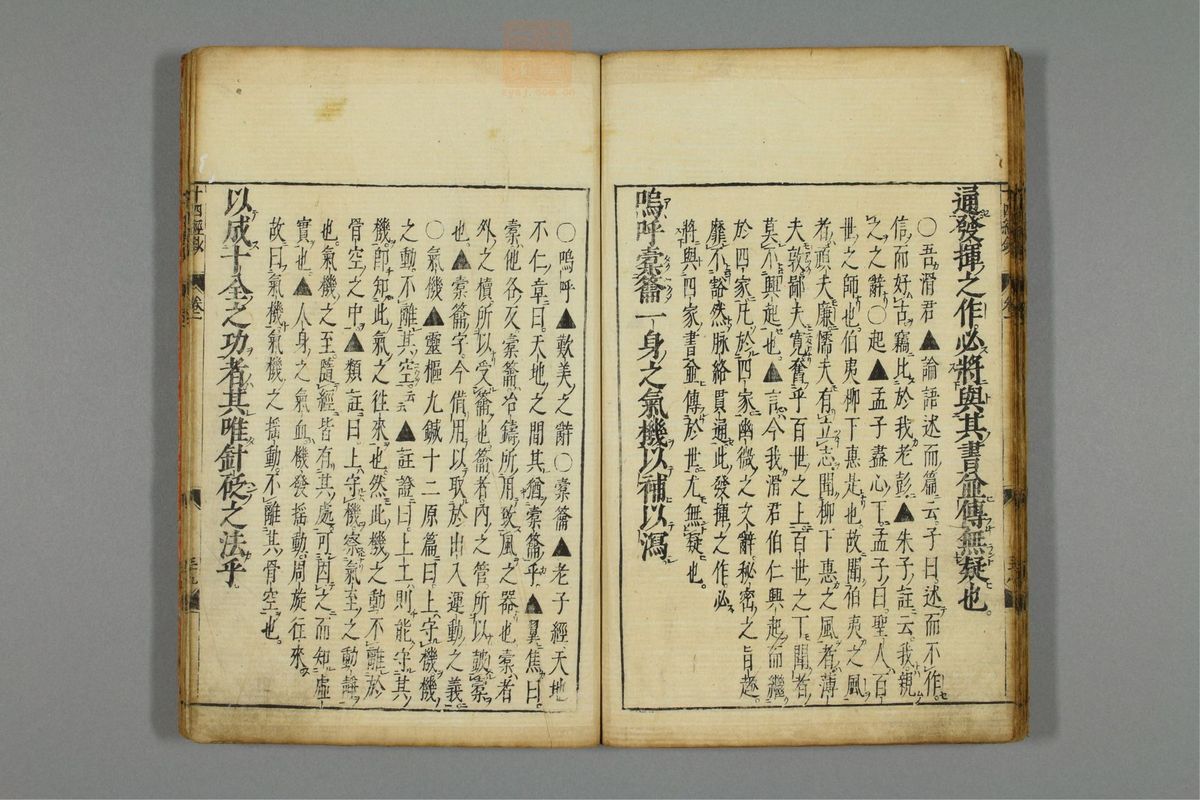 通發揮之作必將與其書並傳無疑也。
〇吾滑君▲論語述而篇云子曰述而不作
信而好古竊比於我老彭▲朱子註云我親
之之辭〇起▲孟子盡心下孟子曰聖人百
世之師也伯夷柳下惠是也故聞伯夷之風
者頑夫廉懦夫有立志聞柳下惠之風者薄
夫敦鄙夫寬奮乎百世之上百世之下聞者
莫不興起也▲言今我滑君伯仁興起而繼
於四家凡於四家幽微之文辭秘密之旨趣
靡不豁然脉絡貫通此發揮之作必
將與四家書並傳於世尤無疑也。
嗚呼橐籥一身之氣機以補以瀉
〇嗚呼▲歎美之辭〇橐籥▲老子經天地
不仁章曰天地之間其猶橐籥乎▲翼焦曰
橐他各又橐籥冶鑄所用致風之器也橐者
外之櫝所以受籥也籥者內之管所以皷橐
也▲橐籥字今借用以取於出入運動之義
〇氣機▲靈樞九鍼十二原篇曰上守機機
之動不離其空云云▲註證曰上工則能守其
機即知此氣之徃來也然此機之動不離於
骨空之中▲類註曰上守機察氣至之動靜
也氣機之至隨經皆有其處可因之而知虛
實也▲人身之氣血機發揺動周旋往來
故曰氣機氣機之揺動不離其骨空也。
以成十全之功者其唯針砭之法乎。
十四經鈔
卷一